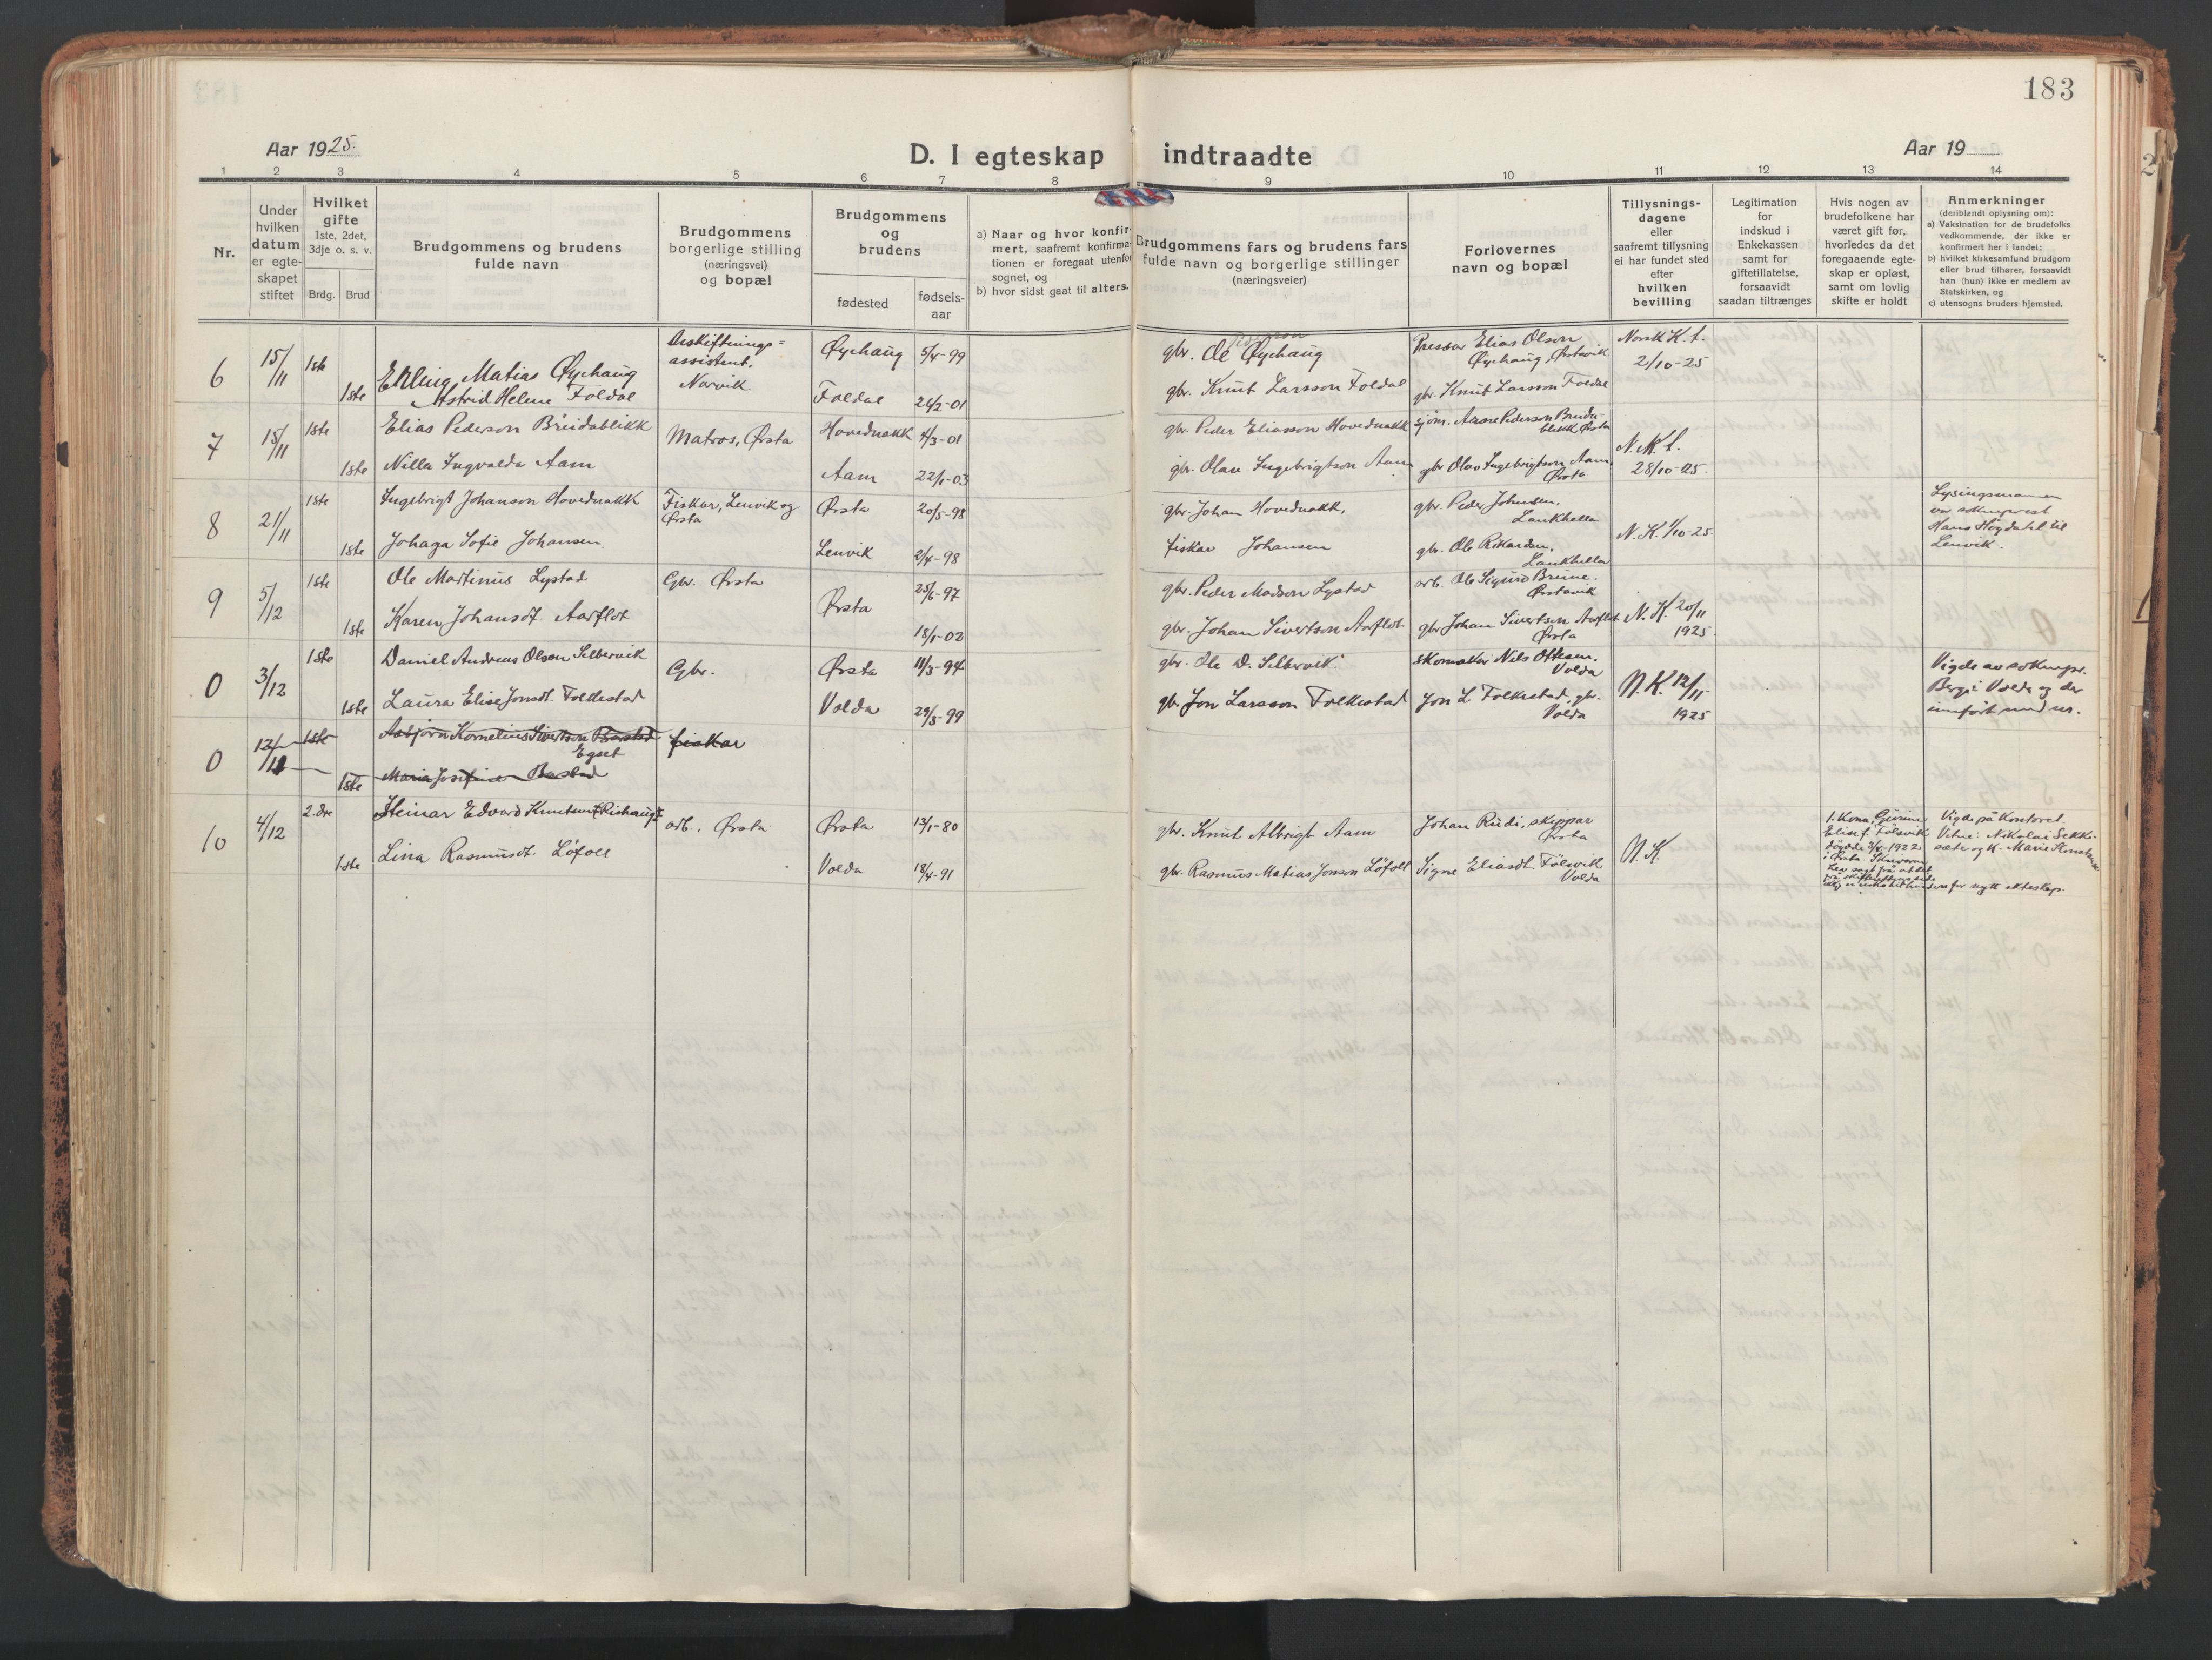 183
Aar 1925.
D. I egteskap indtraadte
Aar 19
1 2 3 4 5 6 7 8 9 10 11 12 13 14
Nr.
Under
hvilken
datum
er egte-
skapet
stiftet
Hvilket
gifte
1ste, 2det,
3dje o. s. v.
Brdg. Brud
Brudgommens og brudens
fulde navn
Brudgommens
borgerlige stilling
(næringsvei)
og bopæl
Brudgommens
og
brudens
fødested
fødsels-
aar
a) Naar og hvor konfir-
mert, saafremt konfirma-
tionen er foregaat utenfor
sognet, og
b) hvor sidst gaat til alters.
Brudgommens fars og brudens fars
fulde navn og borgerlige stillinger
(næringsveier)
Forlovernes
navn og bopæl
Tillysnings-
dagene
eller
saafremt tillysning
ei har fundet sted
efter
hvilken
bevilling
Legitimation
for
indskud i
Enkekassen
samt for
giftetillatelse,
forsaavidt
saadan tiltrænges
Hvis nogen av
brudefolkene har
været gift før,
hvorledes da det
foregaaende egte-
skap er opløst,
samt om lovlig
skifte er holdt
Anmerkninger
(deriblandt oplysning om):
a) Vaksination for de brudefolks
vedkommende, der ikke er
konfirmert her i landet;
b) hvilket kirkesamfund brudgom
eller brud tilhører, forsaavidt
han (hun) ikke er medlem av
Statskirken, og
c) utensogns bruders hjemsted.
6 15/11 1ste Erling Matias Øyehaug
assistent.
Narvik
Øyehaug 5/4-99
gbr. Ole Øyehaug
Elias Olson
Øyehaug, Ørstavik
Norsk K. t.
2/10-25
1ste Astrid Helene Foldal
Foldal 26/2-01
gbr. Knut Larsson Foldal
gbr. Knut Larsson Foldal
7 15/11 1ste Elias Pederson Breidablikk
Matros, Ørsta
Hovednakk 4/3-01
gbr. Peder Eliasson Hovednakk
sjöm. Aarne Pederson Breida-
blikk, Ørsta
N. K. t.
28/10-25.
1ste Nilla Ingvalda Aam
Aam 22/1-03
gbr. Olav Ingebrigtson Aam
gbr Olav Ingebrigtson Aam,
Ørsta
8 21/11 1ste Ingebrigt Johanson Hovednakk
Fiskar, Lenvik og
Ørsta
Ørsta 20/5-98
gbr. Johan Hovednakk,
gbr. Peder Johnsen,
Laukhella
N. K. 1/10-25
va soknprest
Hans Høgdahl til
Lenvik.
1ste Johaga Sofie Johansen.
Lenvik 2/4-98
fiskar Johansen
gbr. Ole Rikardsen,
Laukhella
9 5/12 1ste Ole Martinus Lystad
Gbr. Ørsta
Ørsta
25/6-97
gbr. Peder Madson Lystad
arb. Ole Sigurd Brune.
Ørstavik
N. K. 20/11
1925.
1ste Karen Johansdt. Aarflot
18/1-02
gbr. Johan Sivertson Aarflot
gbr Johan Sivertson Aarflot
Ørsta
0 3/12 1ste Daniel Andreas Olson Silbervik
Gbr.
Ørsta 11/3-94
gbr. Ole D. Silbervik
skomaker Nils Ottesen.
Volda
N. K. 12/11-
1925
Vigde av soknepr.
Berg i Volda og der
innfört und nr.
1ste Laura Elise Jonsdt. Folkestad
Volda 29/5-99
gbr. Jon Larsson Folkestad
Jon L Folkestad, gbr.
Volda
0 12/11 1ste Asbjörn Kornelius Sivertson Barstad
Egset
fiskar
1ste Maria Josefine Barstad
10 4/12 2.dre Steinar Edvard Knutsen (Rishaug)
arb., Ørsta
Ørsta 13/1-80
gbr. Knut Albrigt Aam
Johan Rudi, skippar
Ørsta
N. K.
1. Kona,
Elise f. Fölsvik
døydde 3/4-1922
i Ørsta.
Vigde på Kontoret.
Vitne: Nikolai Sekki-
sæte og K. Marie
for nytt ekteskap.
1ste Lina Rasmusdt. Löfoll
Volda 18/4-91
gbr. Rasmus Matias Jonson Löfoll
Signe Eliasdt. Fölsvik
Volda